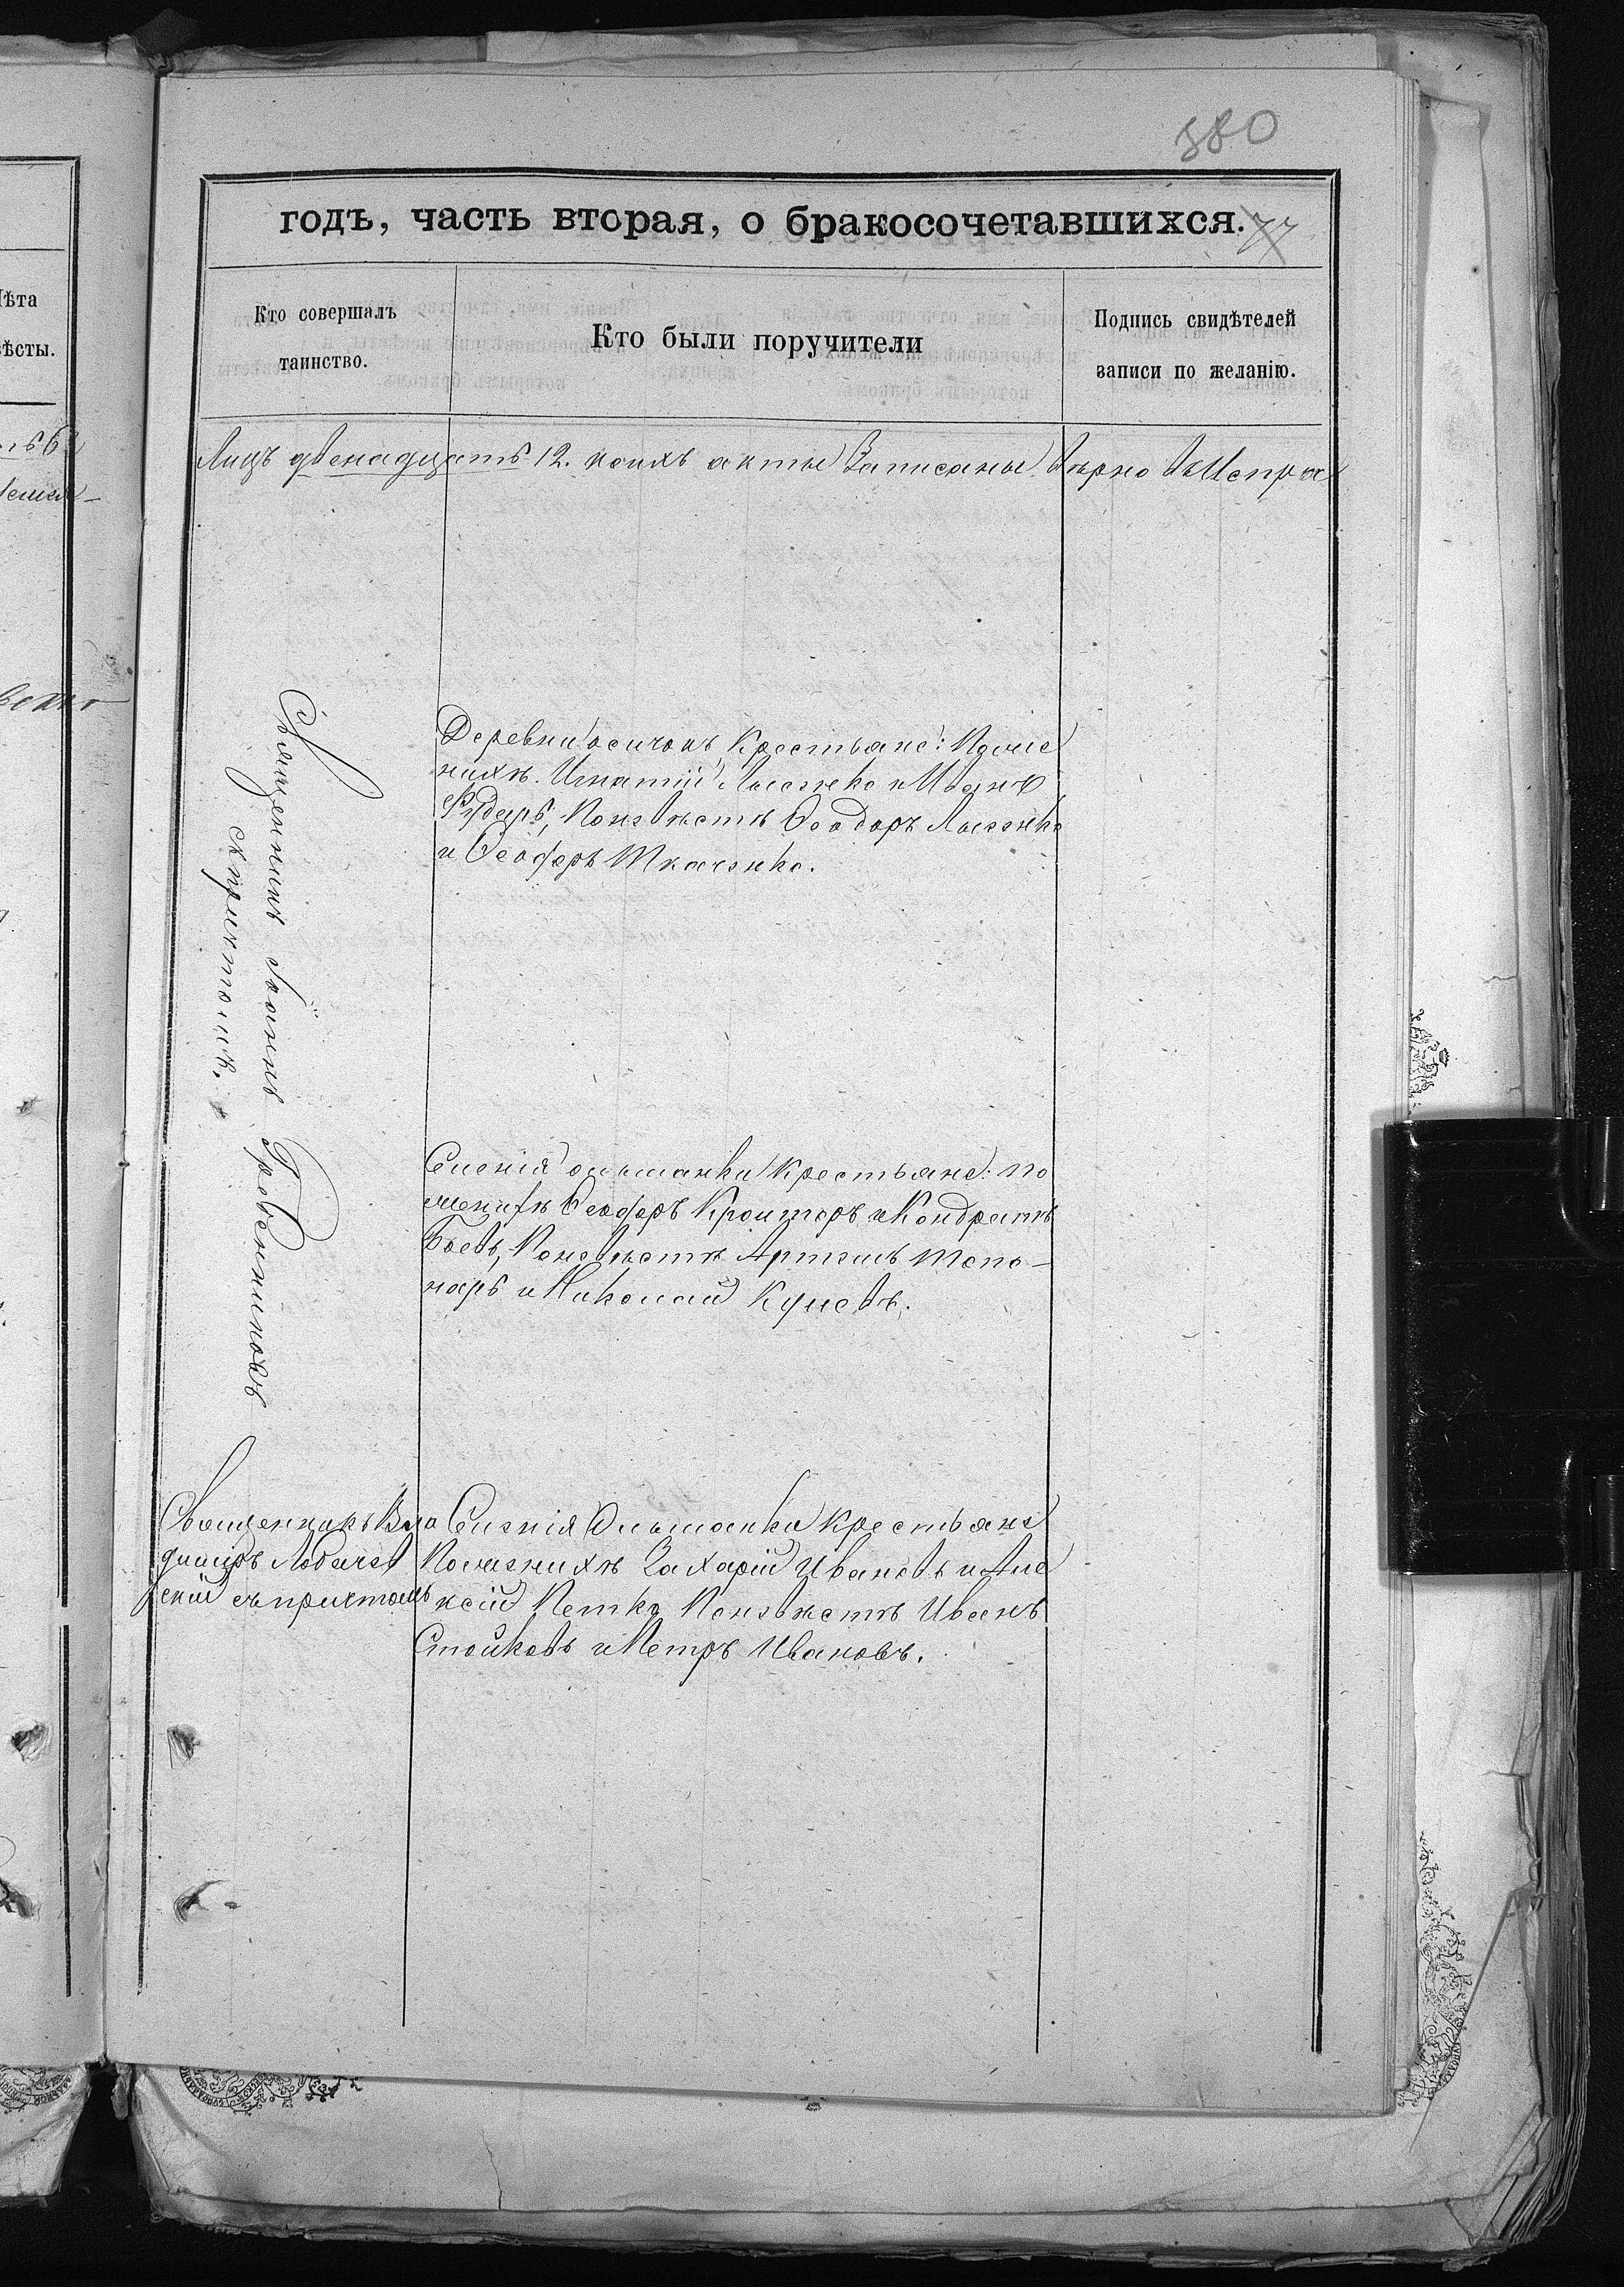 380
годъ, часть вторая, о бракосочетавшихся.
77
Кто совершалъ
таинство.
Кто были поручители
Подпись свидѣтелей
записи по желанію.
Лицъ двенадцать 12. коихъ акты Записаны вѣрно и
Священникъ Іоаннъ Гребенниковъ
съ причтомъ.
Деревни Осичокъ Крестьяне: По же
нихѣ. Игнатій и Иванъ
Рударь, По невѣстѣ Ѳеодоръ
и Ѳеодоръ Ткаченко.
Селенія Ольшанки Крестьяне: по
женихѣ Ѳеодоръ Кроиторъ и Кондратъ
Боевъ, По невѣстѣ Артемъ Попо-
наръ и Николай Куцевъ.
Священникъ Вла
диміръ Лобачев
скій съ причтомъ
Селенія Ольшанки Крестьяне
По женихѣ Захарій Ивановъ и Але
ксій Петко По невѣстѣ Иванъ
Стойковъ и Петръ Ивановъ.
ѣта
ѣсты.